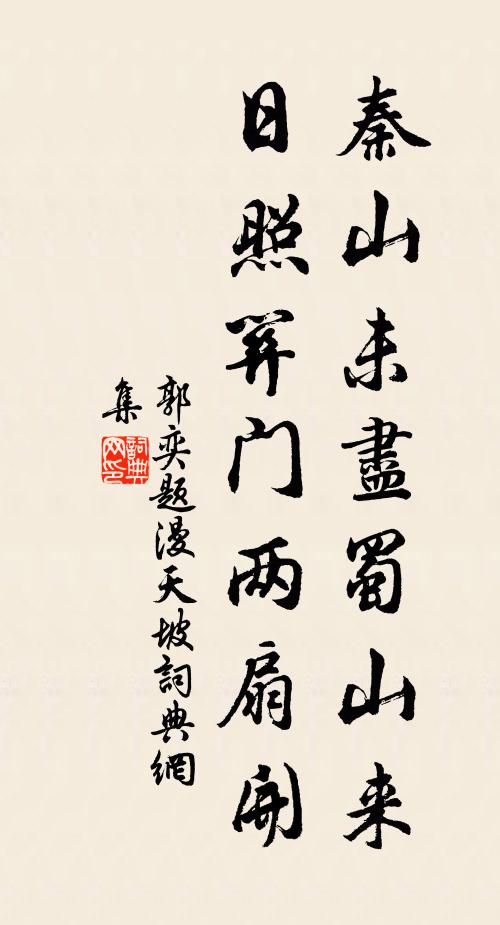 秦山未盡蜀山来
日照關門两扇開
郭奕题漫天坡詞典網
集
詞典
网印